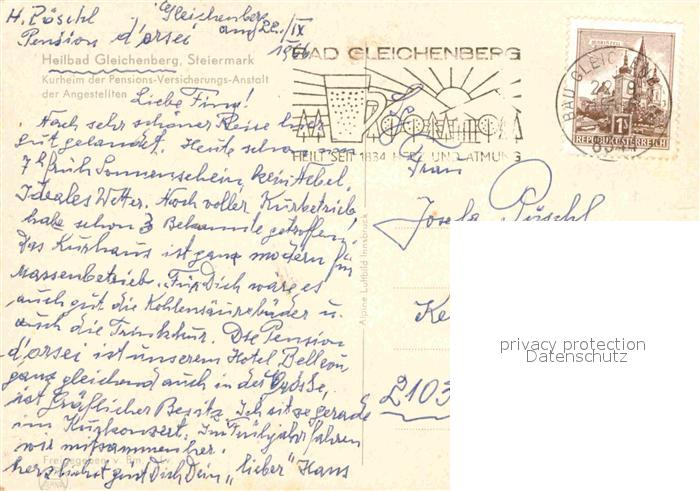 H. Pöschl Gleichenberg
Pension d'orsei am 22./IX
1966
Heilbad Gleichenberg, Steiermark
Kurheim der Pensions-Versicherungs-Anstalt
der Angestellten
Liebe Finy!
Nach sehr schöner Reise hier
gut gelandet. Heute schon von
7h früh Sonnenschein, kein Nebel,
Ideales Wetter. Noch voller Kurbetrieb,
habe schon 3 Bekannte getroffen!
Das Kurhaus ist ganz modern für
Massenbetrieb. Für Dich wäre es
auch gut die Kohlensäurebäder u.
auch die Trinkkur. Die Pension
d'orsei ist unserem Hotel
ganz gleichend auch in der Größe,
ist Gräflicher Besitz. Ich sitze gerade
im Kurkonzert. Im Frühjahr fahren
wir mitsammen her.
Freigegeben v.
herzlichst Dich Dein "lieber" Hans
Alpine Luftbild Innsbruck
BAD GLEICHENBERG
HEILT SEIT 1834 HERZ UND ATMUNG
BAD GLEICH
MARIAZELL
1
REPUBLIK ÖSTERREICH
Frau
Josefa Pöschl
Ke
2103
privacy protection
Datenschutz